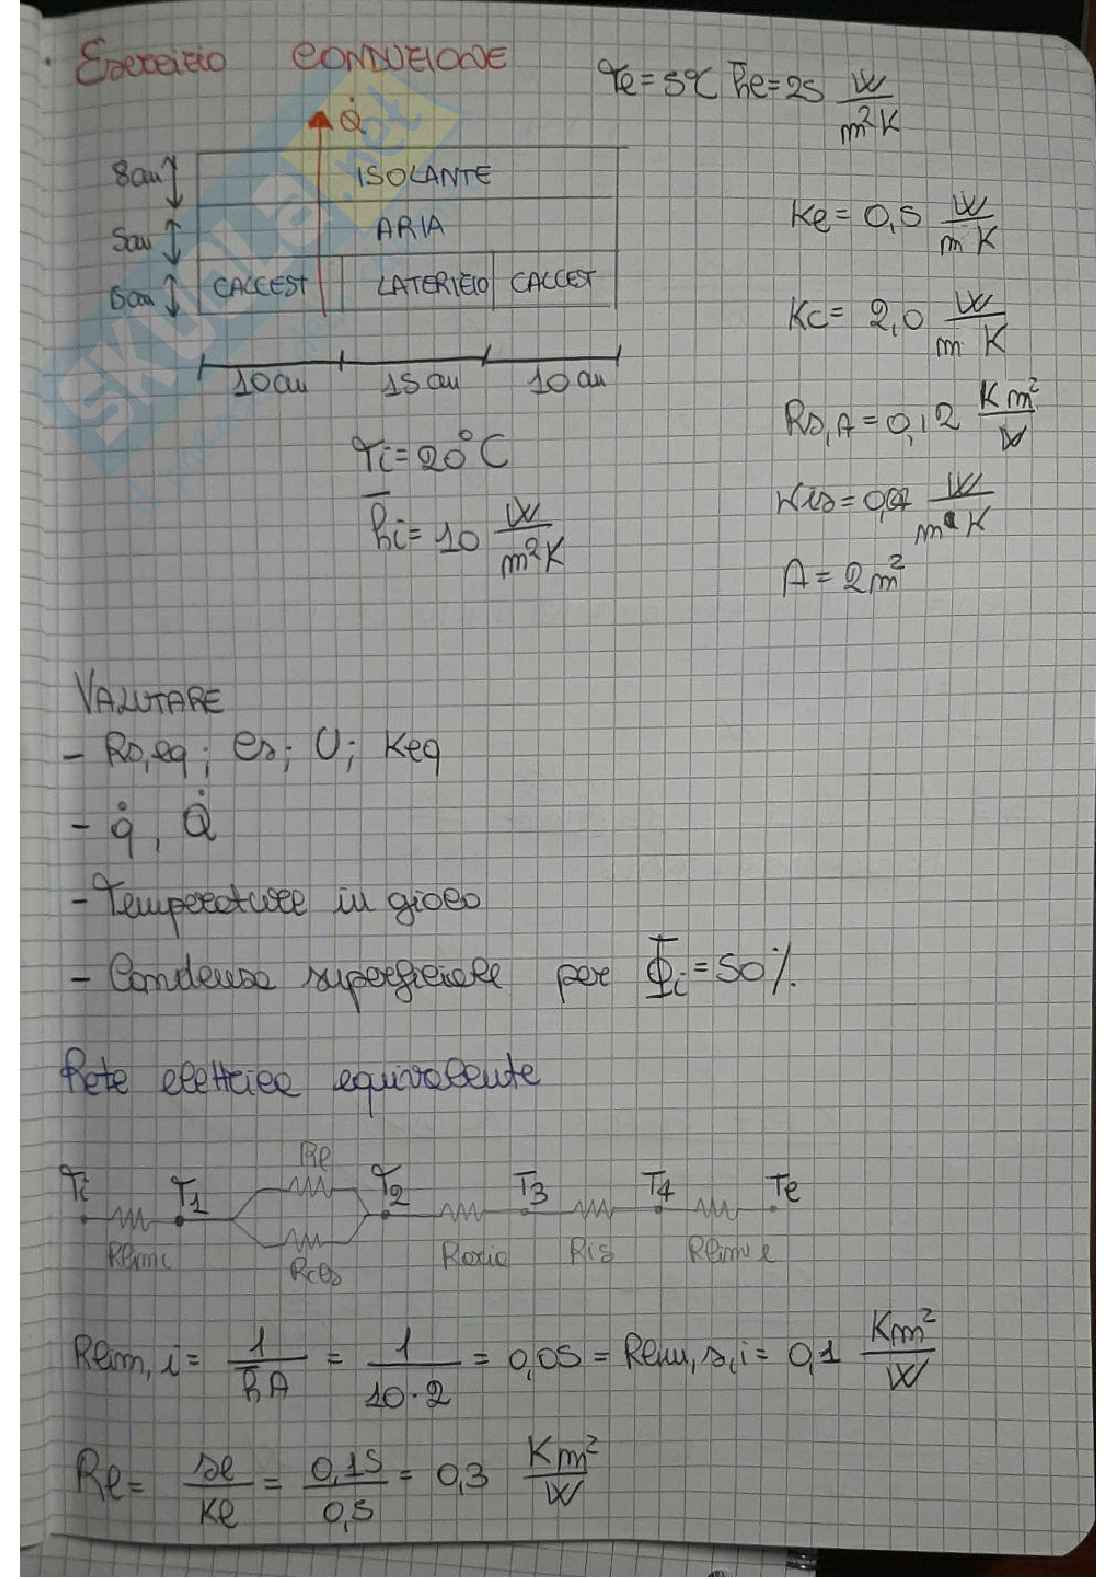 Esercizio CONDUZIONE
Te=5°C h̅e=25 W/m²K
Q̇
8cm ISOLANTE
5cm ARIA
CALCEST LATERIZIO CALCEST
Ke = 0,5 W/m K
Kc = 2,0 W/m K
10cm 15cm 10cm
Rs,A = 0,12 Km²/W
Ti=20°C
h̅i=10 W/m²K
A = 2m²
VALUTARE
- Rs,eq; es; U; Keq
- q̇, Q̇
- Temperature in gioco
- Condensa superficiale per Φ̅i=50%
Rete elettrica equivalente
Re
Ti T1 T2 T3 T4 Te
Rlimi Rcls Raria Ris Rlim e
Rlim,i = 1/h̅A = 1/10·2 = 0,05 = Rlim,s,i = 0,1 Km²/W
Re = se/Ke = 0,15/0,5 = 0,3 Km²/W